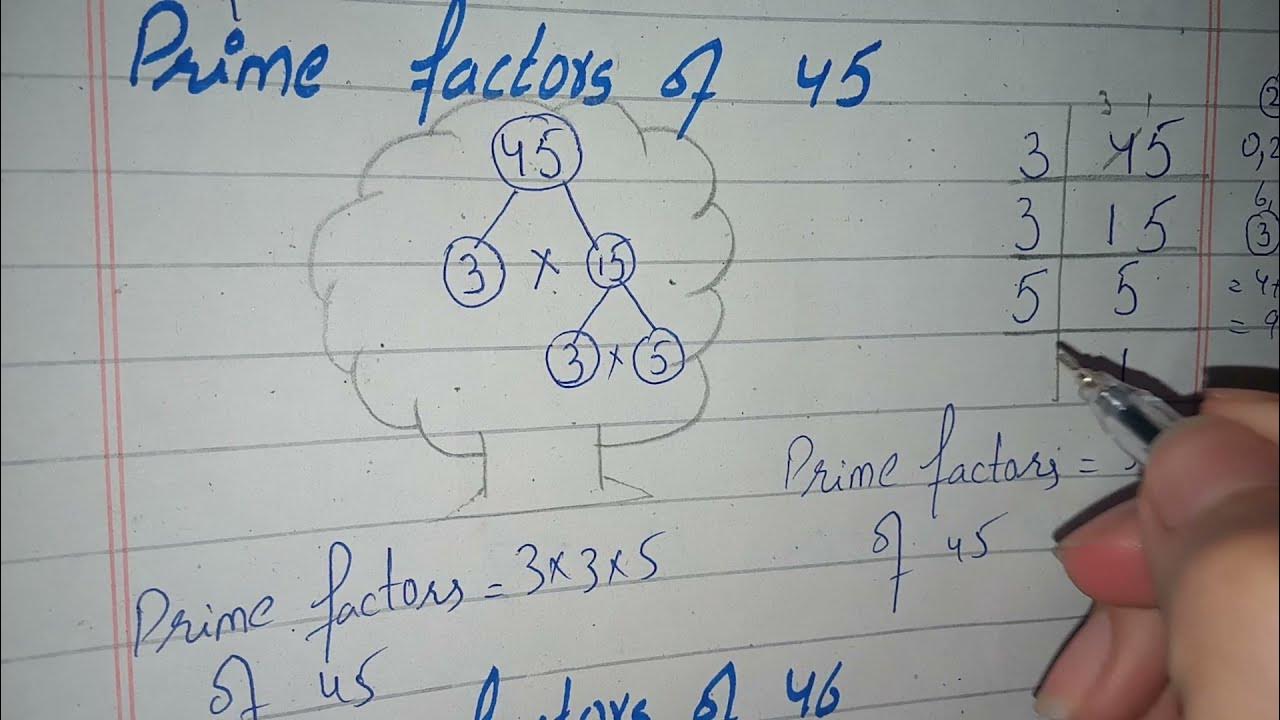 Prime factors of 45
45
3 × 15
3 × 5
Prime factors = 3×3×5
of 45
3 1
3 45
3 15
5 5
1
Prime factors =
of 45
2
0,2
6,
3
= 4+
= 9
factors of 46